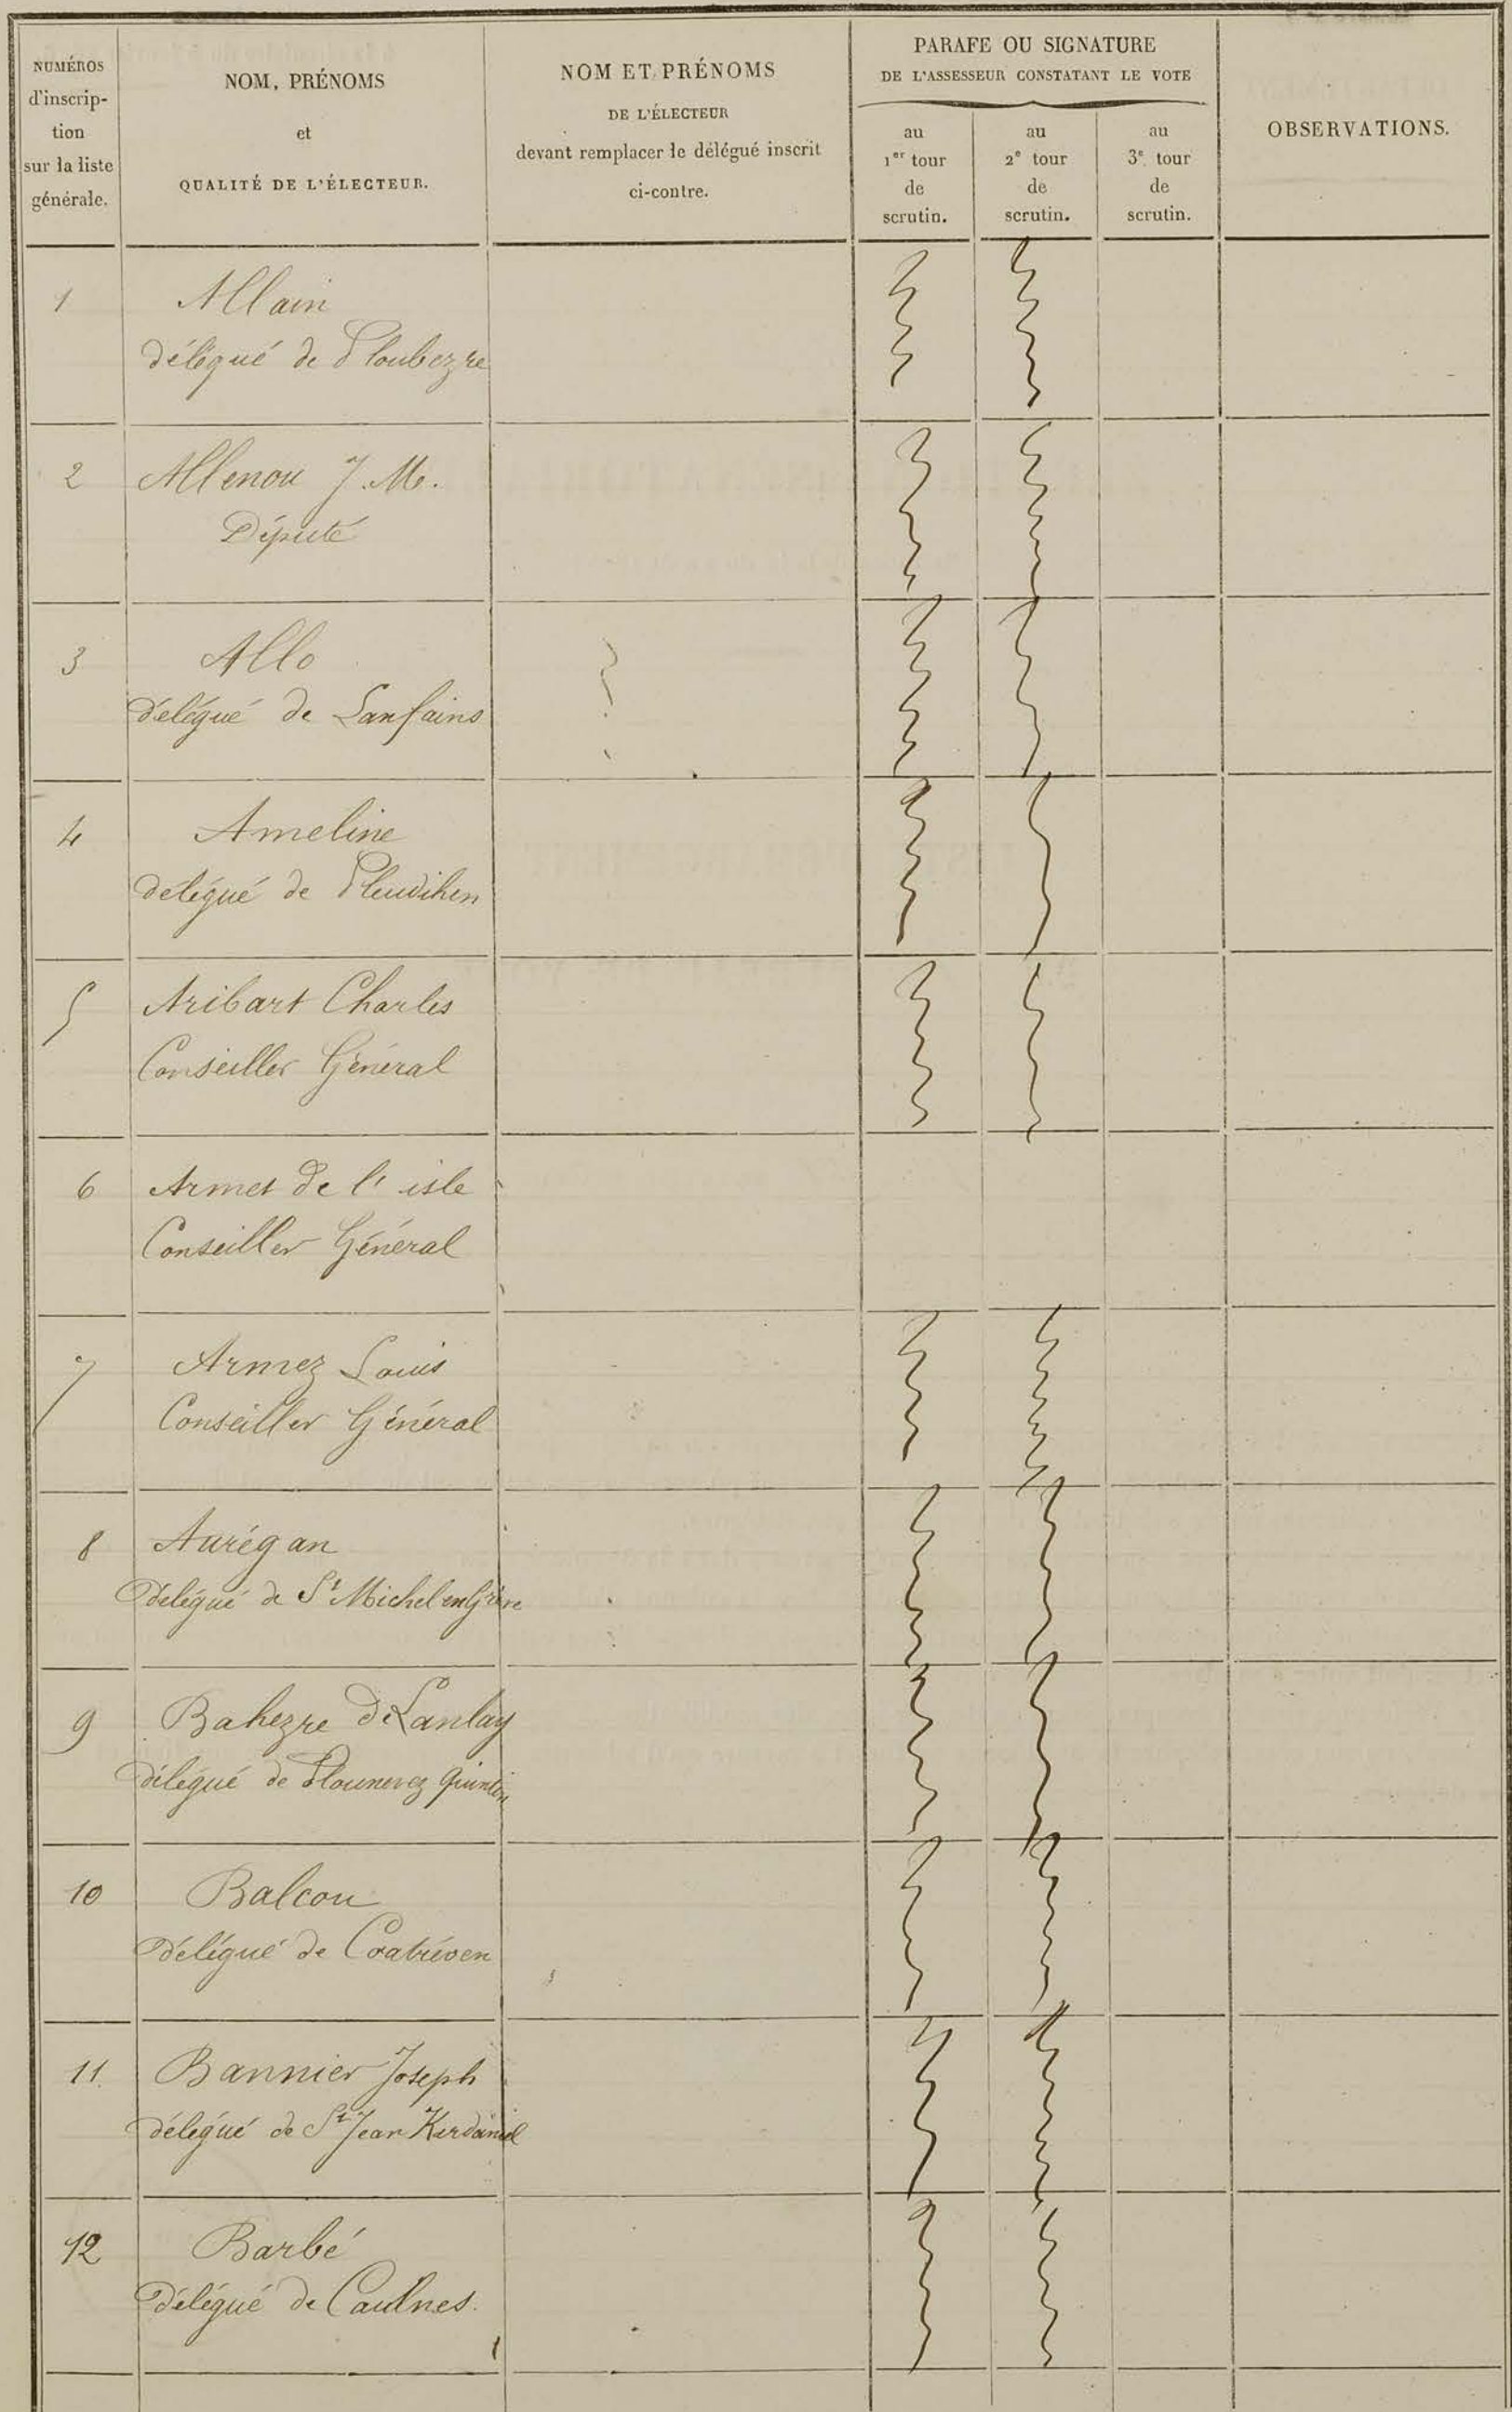 NUMÉROS
d'inscrip-
tion
sur la liste
générale.
NOM, PRÉNOMS
et
QUALITÉ DE L'ÉLECTEUR.
NOM ET PRÉNOMS
DE L'ÉLECTEUR
devant remplacer le délégué inscrit
ci-contre.
PARAFE OU SIGNATURE
DE L'ASSESSEUR CONSTATANT LE VOTE
au
1er tour
de
scrutin.
au
2e tour
de
scrutin.
au
3e tour
de
scrutin.
OBSERVATIONS.
1 Allain
délégué de Ploubezre
2 Allenou J. M.
Député
3 Allo
délégué de Lanfains
4 Ameline
délégué de Pleudihen
5 Aribart Charles
Conseiller Général
6 Armet de l'isle
Conseiller Général
7 Armez Louis
Conseiller Général
8 Aurégan
Délégué de St Michel en Grève
9 Bahezre de Lanlay
délégué de Plounevez Quintin
10 Balcou
Délégué de Coatréven
11 Bannier Joseph
délégué de St Jean Kerdaniel
12 Barbé
Délégué de Caulnes.